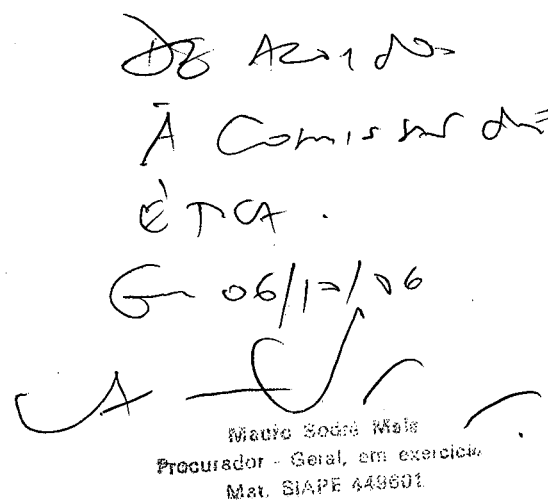 De Acordo
À Comissão de
ÉTCA.
Em 06/10/06
Procurador - Geral, em exercício
Mat. SIAPE 449601